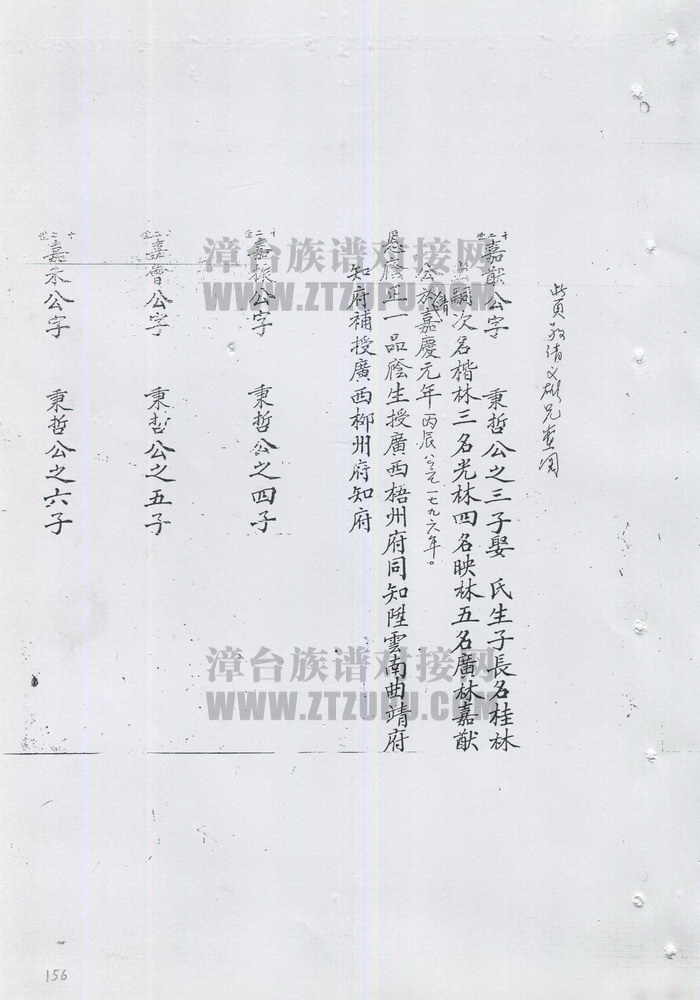 此頁敬請文彬兄查閱
二十世
嘉猷公字 秉哲公之三子娶 氏生子長名桂林
出嗣次名楷林三名光林四名映林五名廣林嘉猷
公於清嘉慶元年丙辰公元一七九六年。
恩廕正一品廕生授廣西梧州府同知陞雲南曲靖府
知府補授廣西柳州府知府
二十世
嘉振公字 秉哲公之四子
二十世
嘉會公字 秉哲公之五子
二十世
嘉禾公字 秉哲公之六子
漳台族谱对接网
WWW.ZTZUPU.COM
漳台族谱对接网
WWW.ZTZUPU.COM
156